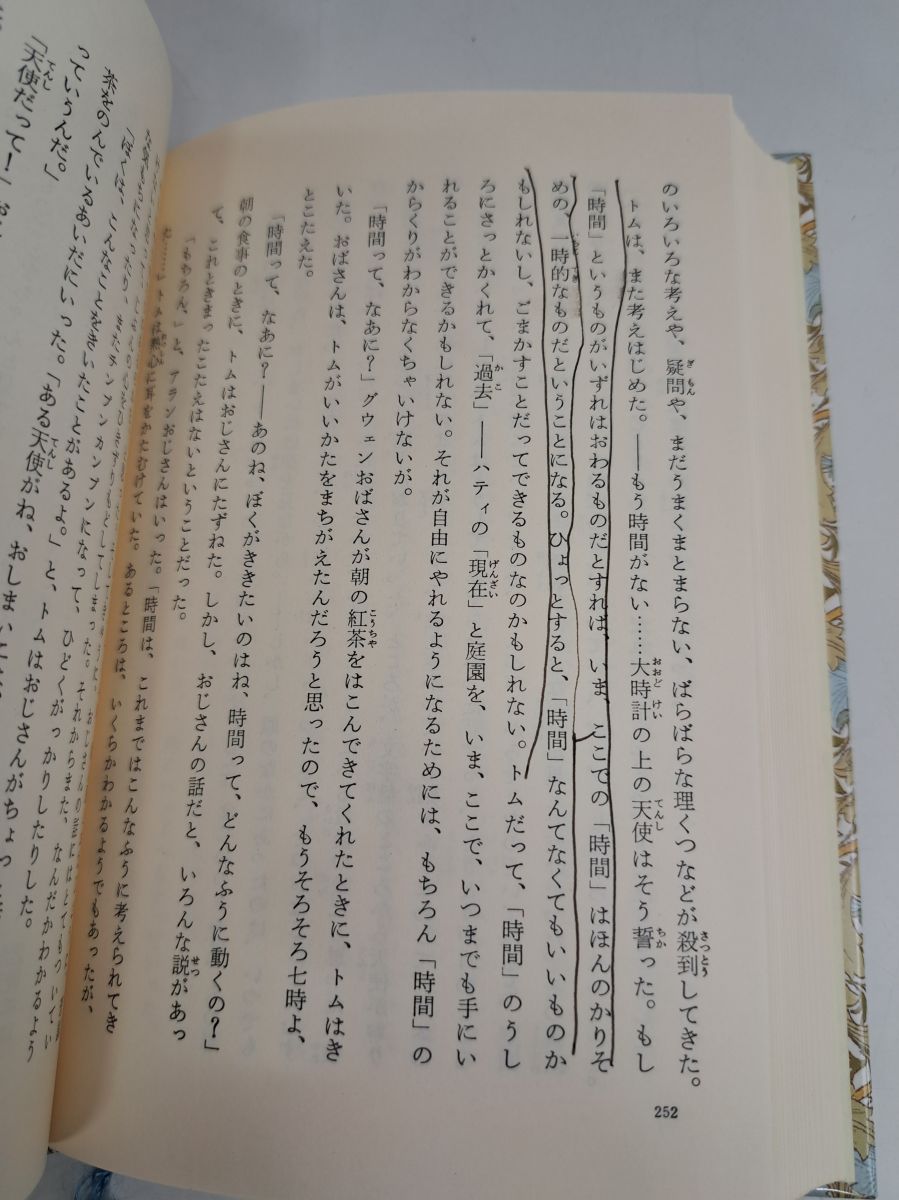 のいろいろな考えや、疑問や、まだうまくまとまらない、ばらばらな理くつなどが殺到してきた。
トムは、また考えはじめた。――もう時間がない……大時計の上の天使はそう誓った。もし
「時間」というものがいずれはおわるものだとすれば、いま、ここでの「時間」はほんのかりそ
めの、一時的なものだということになる。ひょっとすると、「時間」なんてなくてもいいものか
もしれないし、ごまかすことだってできるものなのかもしれない。トムだって、「時間」のうし
ろにさっとかくれて、「過去」――ハティの「現在」と庭園を、いま、ここで、いつまでも手にい
れることができるかもしれない。それが自由にやれるようになるためには、もちろん「時間」の
からくりがわからなくちゃいけないが。
「時間って、なあに?」グウェンおばさんが朝の紅茶をはこんできてくれたときに、トムはき
いた。おばさんは、トムがいいかたをまちがえたんだろうと思ったので、もうそろそろ七時よ、
とこたえた。
「時間って、なあに?――あのね、ぼくがききたいのはね、時間って、どんなふうに動くの?」
朝の食事のときに、トムはおじさんにたずねた。しかし、おじさんの話だと、いろんな説があっ
て、これときまったこたえはないということだった。
「もちろん、」と、アランおじさんはいった。「時間は、これまではこんなふうに考えられてき
た……」トムは熱心に耳をかたむけていた。あるところは、いくらかわかるようでもあったが、
252
またチンプンカンプンになって、ひどくがっかりしたりした。
「ぼくは、こんなことをきいたことがあるよ。」と、トムはおじさんがちょっ
茶をのんでいるあいだにいった。「ある天使がね、おしまいに
っていうんだ。」
「天使だって!」